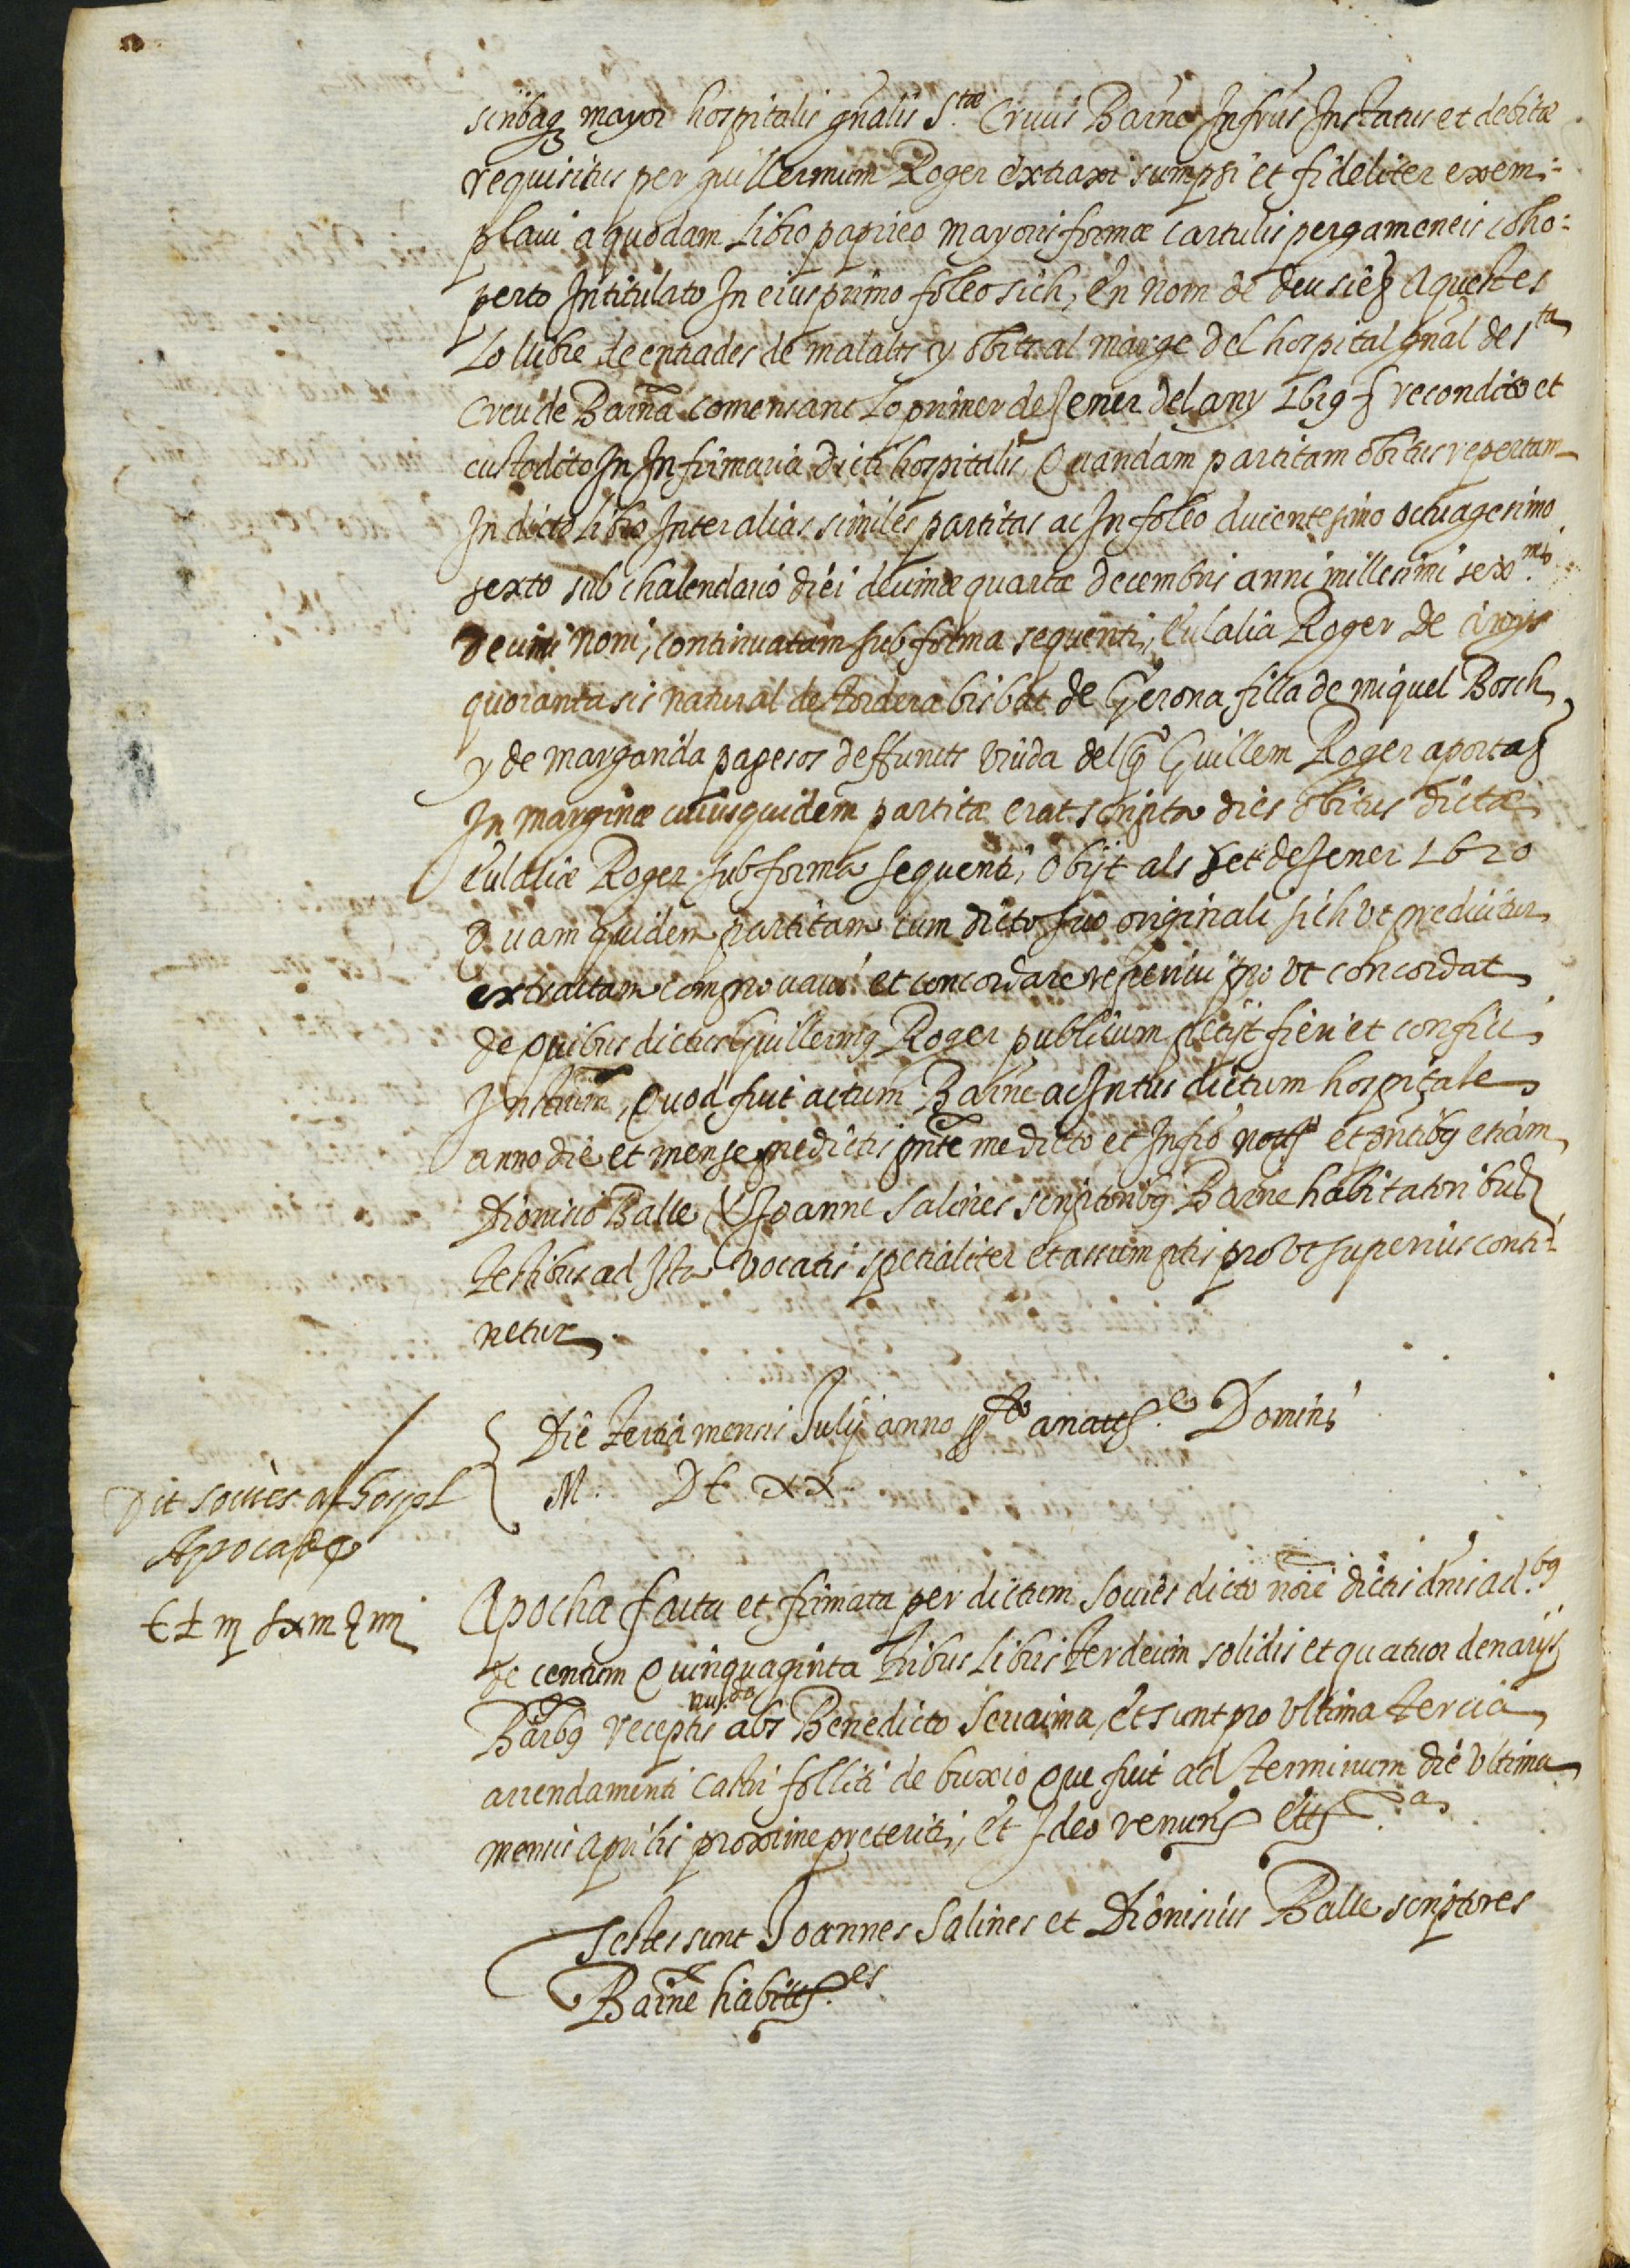 scribaq mayor hospitalis gnalis S.tæ Crucis Barne Infrus Instatus et debitæ
requisitus per guillermum Roger extraxi sumpsi et fideliter exem-
plaui a quodam Libro papireo mayoris formæ cartulis pergameneis coho-
perto Intitulato In eius primo foleo sich, En nom de deu sie Aquest es
Lo llibre de entrades de malalts y obits al marge del hospital gnal de s.ta
Creu de Barna comensant Lo primer de Jener del any 1619 recondito et
custodito In Infirmaria dicti hospitalis, Quandam partitam obitus repertam
In dicto Libro Inter alias similes partitas ac In foleo ducentesimo octuagesimo
sexto sub chalendario diei decimæ quartæ decembris anni millesimi sex.mi
decimi noni, continuatam sub forma sequenti, Eulalia Roger de anys
quoranta sis natural de tordera bisbat de Gerona filla de miquel Bosch
y de margarida pagesos deffuncts viuda del q.º Guillem Roger aporta
In marginæ cuiusquidem partitæ erat scripta dies obitus dictæ
Eulaliæ Roger sub forma sequenti, Obijt als set de Jener 1620
Quam quidem partitam cum dicto suo originali sich vt predicitur
extractam comprouaui et concordare reperiui pro vt concordat
de quibus dictus Guillermus Roger publicum petijt fieri et confici
Instrum, Quod fuit actum Barne ac Intus dictum hospitale
anno die et mense predictis pnte me dicto et Infro nott.º et pntibus etiam
Dionisio Balle & Joanne Salines scriptoribus Barne habitatoribus
testibus ad Ista vocatis specialiter et assumptis pro vt superius conti-
netur
Die tertia mensis Julij anno p.to a natt.e Domini
M. DC xx
Dit sociès al hospl
Apoca de
Apocha facta et firmata per dictum Souiès dicto noie dictis dnis ad.bus
de centum Quinquaginta tribus Libris terdecim solidis et quatuor denarijs
Barbus receptis abs Benedicto Seuaima, et sunt pro vltima tercia
arrendamenti Castri folliti de buxio Que fuit ad terminum die vltima
mensis aprilis proxime preteriti, et Ideo renuns ett.a
Testes sunt Joannes Salines et Dionisius Balle scriptores
Barne habitt.es